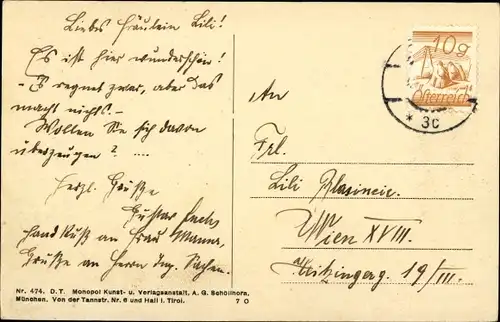 Liebes Fräulein Lili!
Es ist hier wunderschön!
- Es regnet zwar, aber das
macht nichts. -
Wollen Sie sich davon
überzeugen? ....
Herzl. Grüße
Gustav
Handkuß an Frau Mama,
Grüße an Herrn Ing.
Nr. 474. D. T. Monopol Kunst- u. Verlagsanstalt, A. G. Schöllhorn,
München. Von der Tannstr. Nr. 6 und Hall i. Tirol.
7 0
10g
Österreich
* 3c
An
Frl.
Lili
Wien XVIII.
19/III.